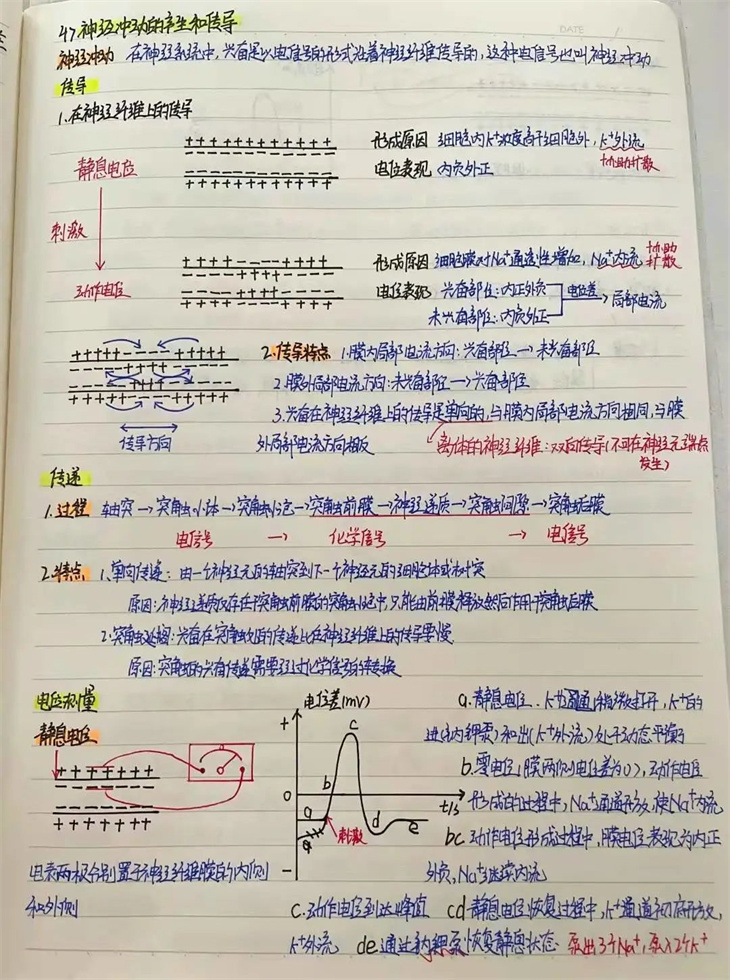 47 神经冲动的产生和传导
DATE
神经冲动 在神经系统中,兴奋是以电信号的形式沿着神经纤维传导的,这种电信号也叫神经冲动
传导
1.在神经纤维上的传导
静息电位
+++++++++++
形成原因 细胞内K+浓度高于细胞外,K+外流
协助扩散
电位表现 内负外正
刺激
动作电位
形成原因 细胞膜对Na+通透性增加,Na+内流 协助扩散
电位表现 兴奋部位:内正外负 电位差 局部电流
未兴奋部位:内负外正
2.传导特点 1.膜内局部电流方向:兴奋部位→未兴奋部位
2.膜外局部电流方向:未兴奋部位→兴奋部位
3.兴奋在神经纤维上的传导是单向的,与膜内局部电流方向相同,与膜
传导方向
外局部电流方向相反
离体的神经纤维:双向传导(不可在神经元端点
发生)
传递
1.过程 轴突→突触小体→突触小泡→突触前膜→神经递质→突触间隙→突触后膜
电信号 → 化学信号 → 电信号
2.特点 1.单向传递:由一个神经元的轴突到下一个神经元的细胞体或树突
原因:神经递质仅存在于突触前膜的突触小泡中,只能由前膜释放然后作用于突触后膜
2.突触延搁:兴奋在突触处的传递比在神经纤维上的传导要慢
原因:突触处的兴奋传递需要经过化学信号的转换
电位测量
静息电位
电表两极分别置于神经纤维膜的内侧
和外侧
电位差(mV)
+
0
-
a
b
c
d
e
t/s
刺激
a.静息电位.K+通道稍微打开,K+的
进(钠钾泵)和出(K+外流)处于动态平衡
b.零电位(膜两侧电位差为0),动作电位
形成的过程中,Na+通道开放,使Na+内流
bc 动作电位形成过程中,膜电位表现为内正
外负,Na+继续内流
c.动作电位到达峰值 cd 静息电位恢复过程中,K+通道彻底开放,
K+外流 de 通过钠钾泵恢复静息状态.泵出3个Na+,泵入2个K+